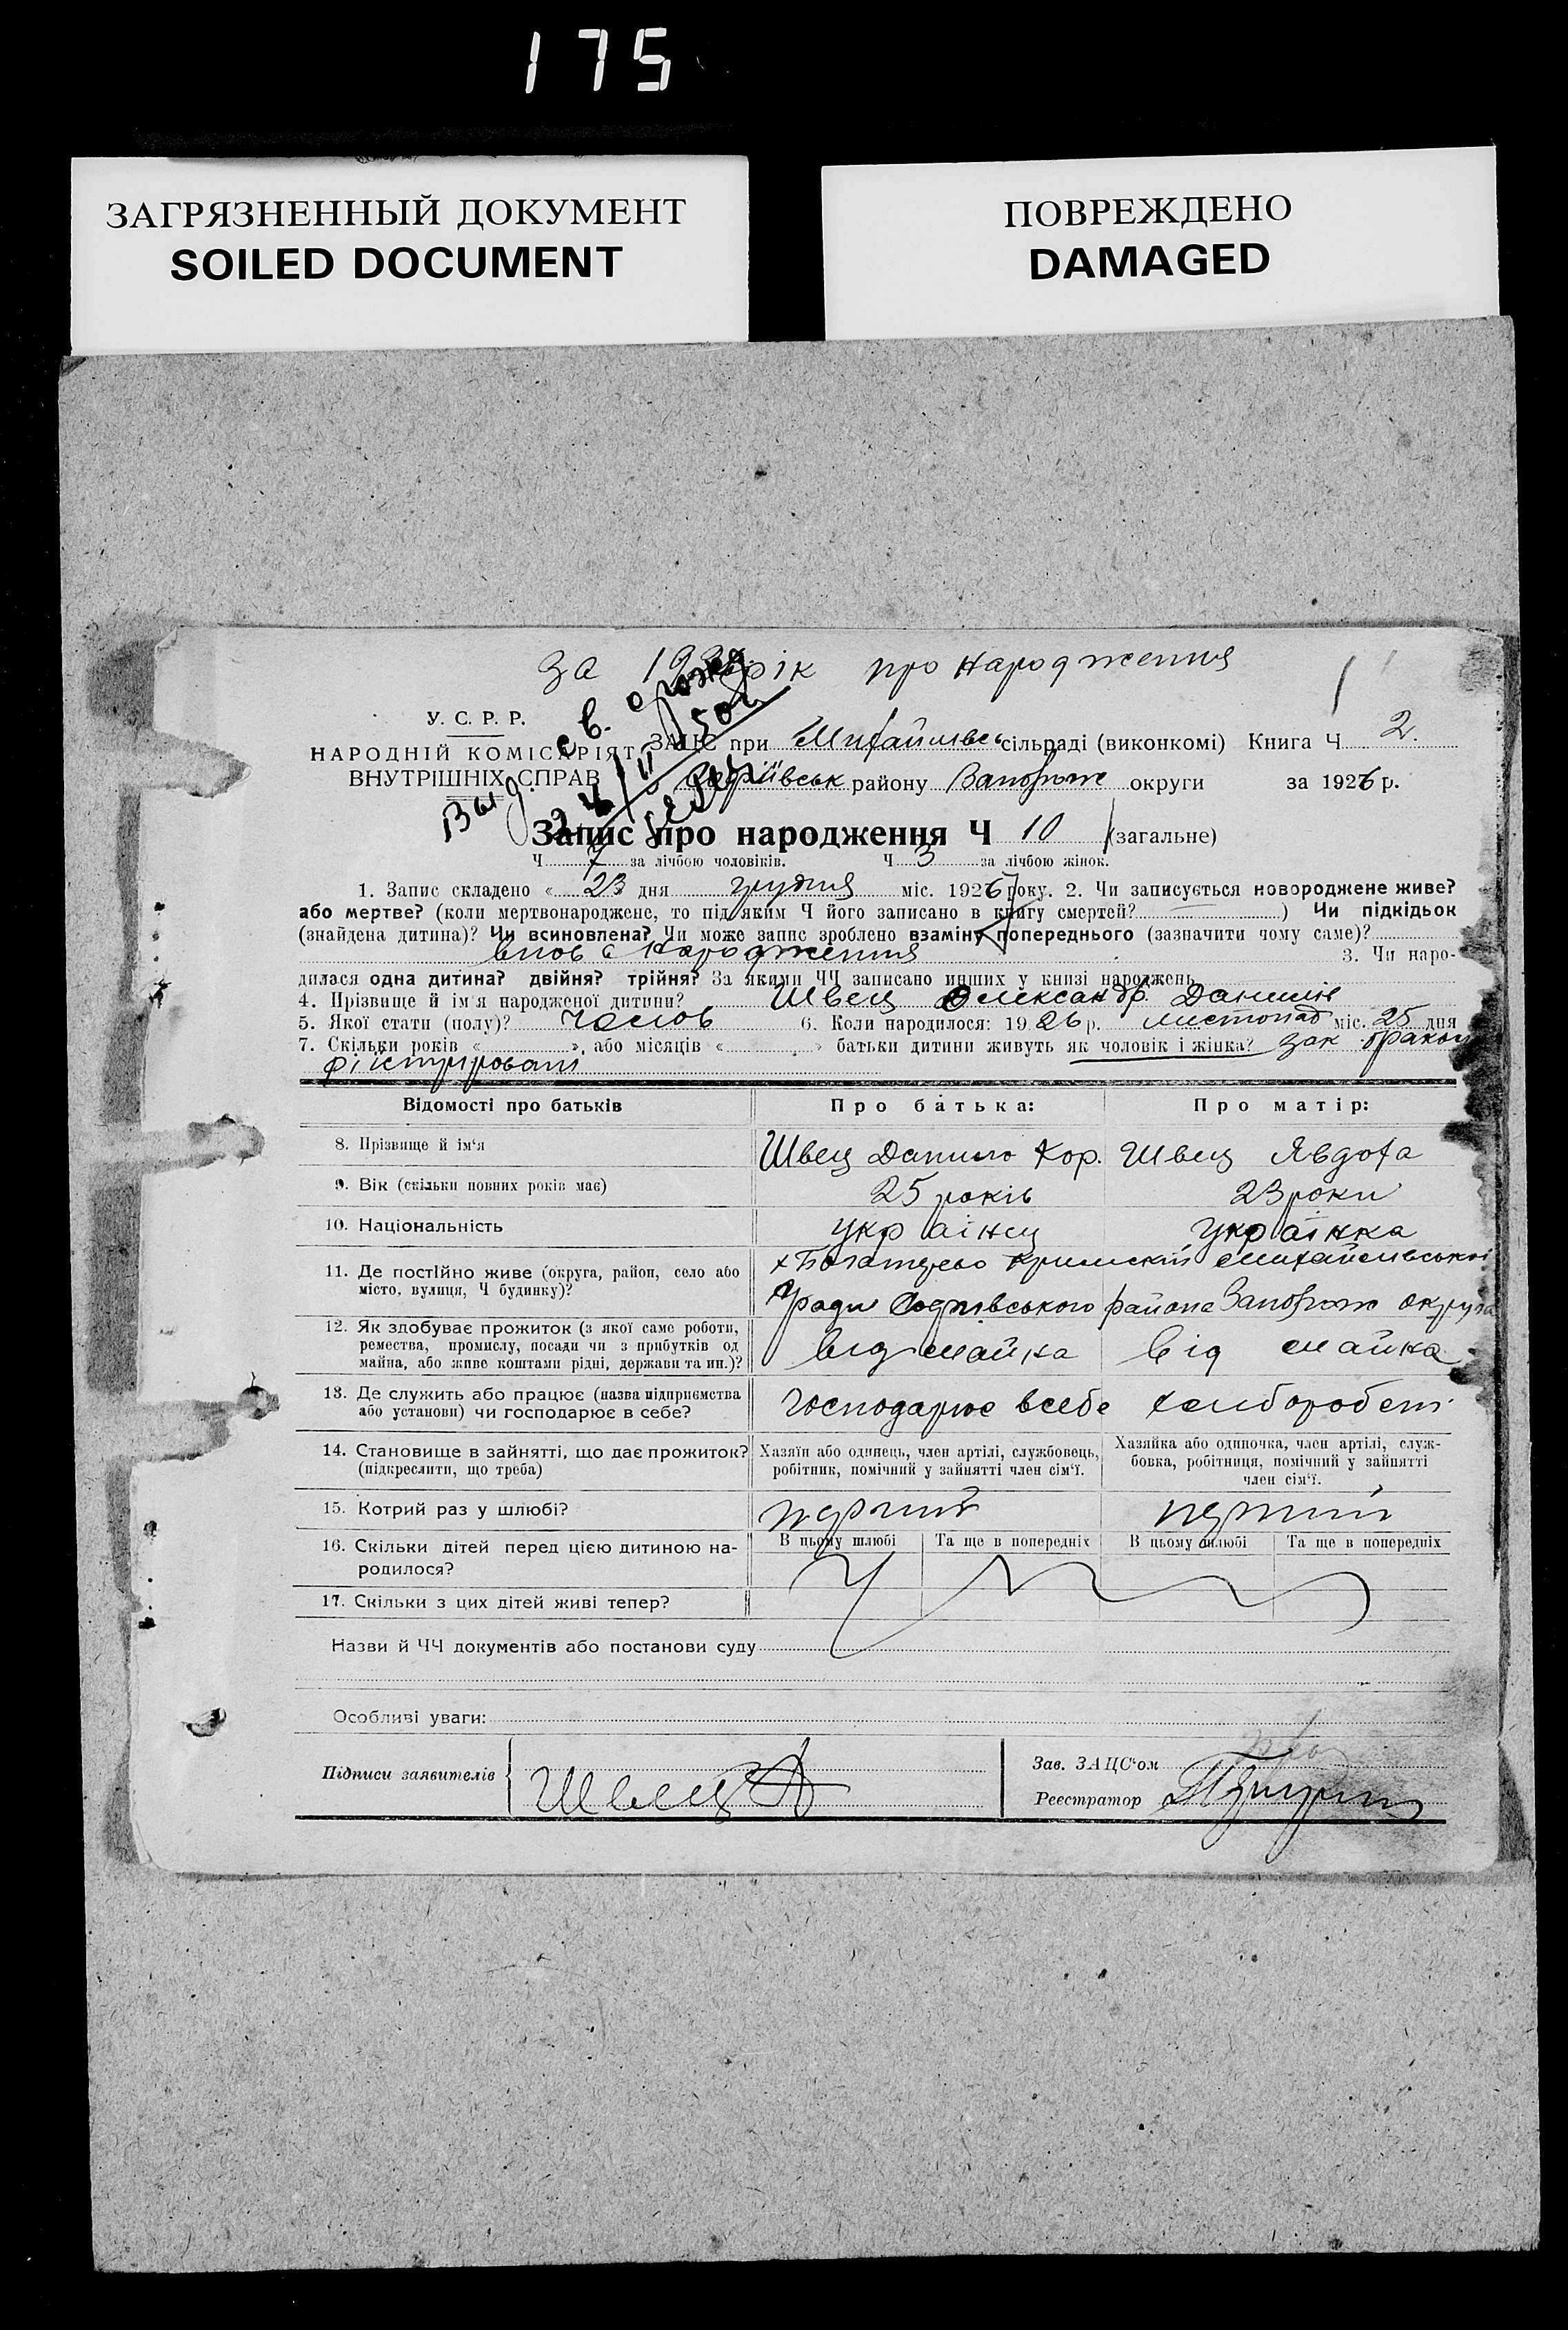 175
ЗАГРЯЗНЕННЫЙ ДОКУМЕНТ
SOILED DOCUMENT
ПОВРЕЖДЕНО
DAMAGED
за рік про народження
У. С. Р. Р.
НАРОДНІЙ КОМІСАРІЯТ
ВНУТРІШНІХ СПРАВ
ЗАЦС при Михайлівсь сільраді (виконкомі) Книга Ч 2.
району Запорож округи за 1926 р.
Запис про народження Ч 10 (загальне)
Ч 7 за лічбою чоловіків. Ч 3 за лічбою жінок.
1. Запис складено « 23 дня грудня міс. 1926 року. 2. Чи записується новороджене живе?
або мертве? (коли мертвонароджене, то під яким Ч його записано в книгу смертей? ) Чи підкідьок
(знайдена дитина)? Чи всиновлена? Чи може запис зроблено взаміну попереднього (зазначити чому саме)?
вновь народження 3. Чи наро-
дилася одна дитина? двійня? трійня? За якими ЧЧ записано инших у книзі народжень
4. Прізвище й ім'я народженої дитини? Швец Олександр. Данилів
5. Якої стати (полу)? чолов 6. Коли народилося: 1926 р. листопад міс. 25 дня
7. Скільки років « », або місяців « » батьки дитини живуть як чоловік і жінка? зак браком
Відомості про батьків Про батька: Про матір:
8. Прізвище й ім'я Швец Данило Кор. Швец Явдоха
9. Вік (скільки повних років має) 25 років 23 роки
10. Національність українец українка
11. Де постійно живе (округа, район, село або
місто, вулиця, Ч будинку)?
ради району Запорож округа
12. Як здобуває прожиток (з якої саме роботи,
ремества, промислу, посади чи з прибутків од
майна, або живе коштами рідні, держави та ин.)?
від майна від майна
13. Де служить або працює (назва підприємства
або установи) чи господарює в себе?
господарює всебе
14. Становище в зайнятті, що дає прожиток?
(підкреслити, що треба)
Хазяїн або одинець, член артілі, службовець,
робітник, помічний у зайнятті член сім'ї.
Хазяйка або одиночка, член артілі, служ-
бовка, робітниця, помічний у зайнятті
член сім'ї.
15. Котрий раз у шлюбі? первий первий
16. Скільки дітей перед цією дитиною на-
родилося?
В цьому шлюбі Та ще в попередніх В цьому шлюбі Та ще в попередніх
17. Скільки з цих дітей живі тепер?
Назви й ЧЧ документів або постанови суду
Особливі уваги:
Підписи заявителів Швец Д
Зав. ЗАЦС'ом
Реєстратор